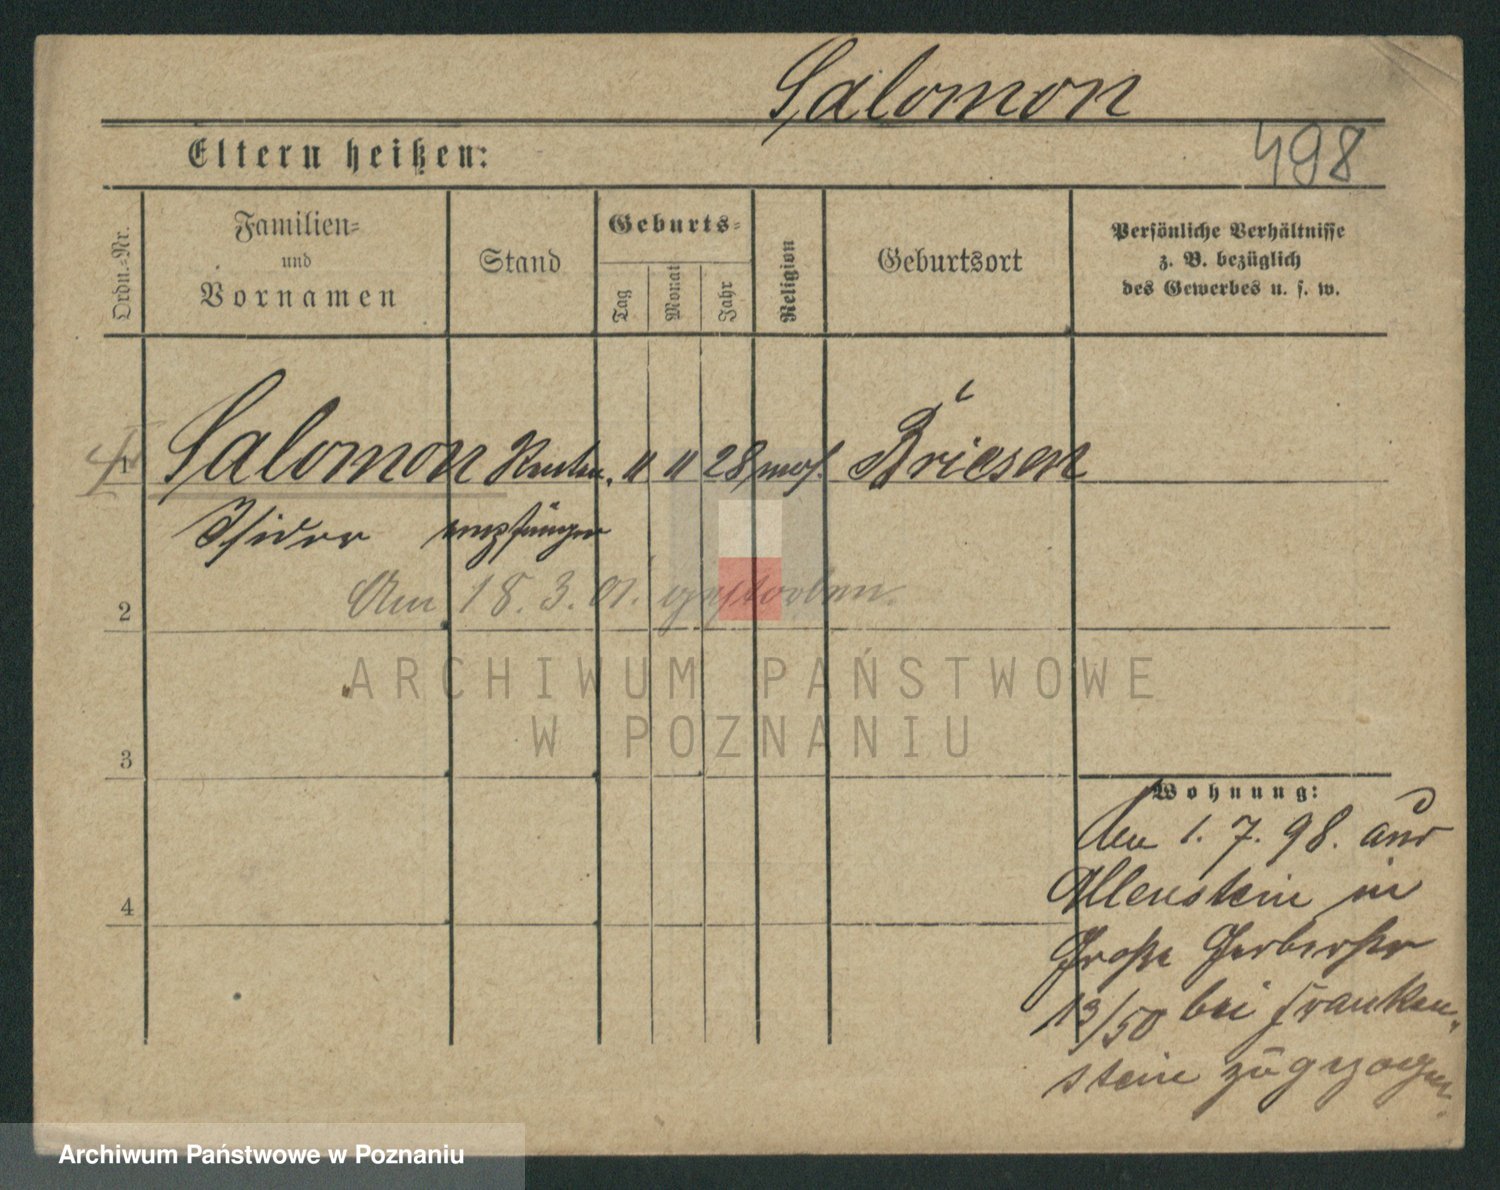 Salomon
Eltern heißen:
498
Ordn.-Nr.
Familien-
und
Vornamen
Stand
Geburts-
Tag
Monat
Jahr
Religion
Geburtsort
Persönliche Verhältnisse
z. B. bezüglich
des Gewerbes u. s. w.
1 Salomon Renten. 11 11 28 mos. Briesen
Isidor empfänger
Am 18. 3. 01. gestorben.
2
ARCHIWUM PAŃSTWOWE
W POZNANIU
3
Wohnung:
Am 1. 7. 98. aus
Allenstein in
4
Große Gerberstr
13/50 bei Franken,
stein zugezogen.
Archiwum Państwowe w Poznaniu